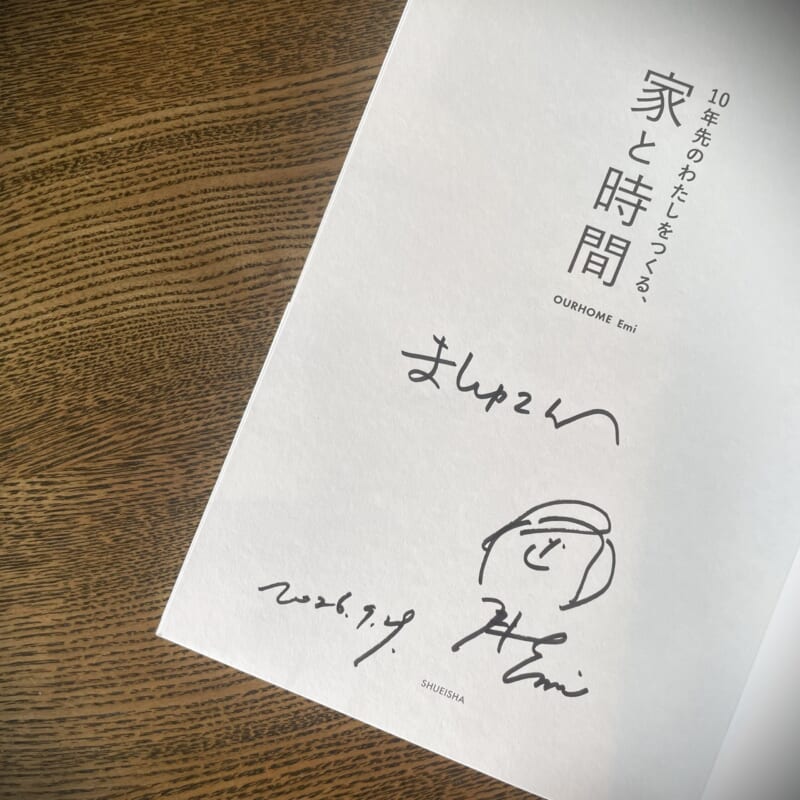 10年先のわたしをつくる、
家と時間
OURHOME Emi
ましゅさんへ
2026.9.29.
Emi
SHUEISHA